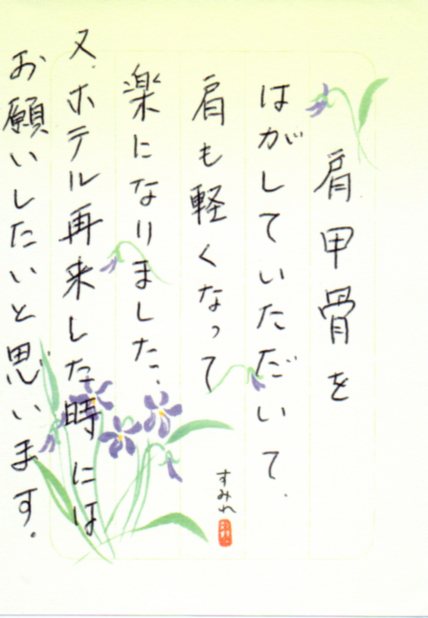 肩甲骨を
はがしていただいて、
肩も軽くなって
楽になりました、
又、ホテル再来した時には
お願いしたいと思います。
すみれ